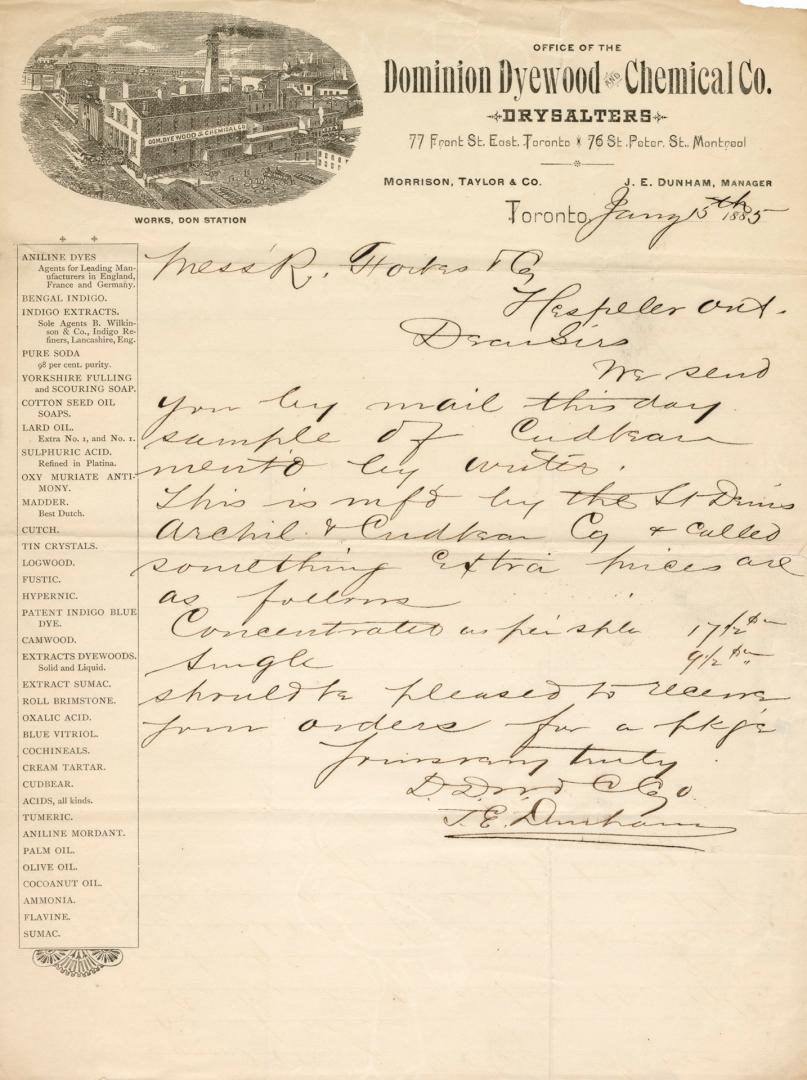 DOM. DYE WOOD & CHEMICAL CO
WORKS, DON STATION
OFFICE OF THE
Dominion Dyewood AND Chemical Co.
DRYSALTERS
77 Front St. East. Toronto 76 St. Peter. St. Montreal
MORRISON, TAYLOR & CO. J. E. DUNHAM, MANAGER
Toronto, Jany 15th 1885
ANILINE DYES
Agents for Leading Man-
ufacturers in England,
France and Germany.
BENGAL INDIGO.
INDIGO EXTRACTS.
Sole Agents B. Wilkin-
son & Co., Indigo Re-
finers, Lancashire, Eng.
PURE SODA
98 per cent. purity.
YORKSHIRE FULLING
and SCOURING SOAP.
COTTON SEED OIL
SOAPS.
LARD OIL.
Extra No. 1, and No. 1.
SULPHURIC ACID.
Refined in Platina.
OXY MURIATE ANTI-
MONY.
MADDER.
Best Dutch.
CUTCH.
TIN CRYSTALS.
LOGWOOD.
FUSTIC.
HYPERNIC.
PATENT INDIGO BLUE
DYE.
CAMWOOD.
EXTRACTS DYEWOODS.
Solid and Liquid.
EXTRACT SUMAC.
ROLL BRIMSTONE.
OXALIC ACID.
BLUE VITRIOL.
COCHINEALS.
CREAM TARTAR.
CUDBEAR.
ACIDS, all kinds.
TUMERIC.
ANILINE MORDANT.
PALM OIL.
OLIVE OIL.
COCOANUT OIL.
AMMONIA.
FLAVINE.
SUMAC.
Mess R. Forbes & Co
Hespeler Ont.
Dear Sirs
We send
you by mail this day
sample of Cudbear
ment'd by writer.
This is mf'd by the St Denis
Archil & Cudbear Co & called
something extra prices are
as follows
Concentrated as per sple 17 1/2
Single 9 1/2
should be pleased to receive
your orders for a pkge
Yours very truly
D. D. Wd C Co
J. E. Dunham